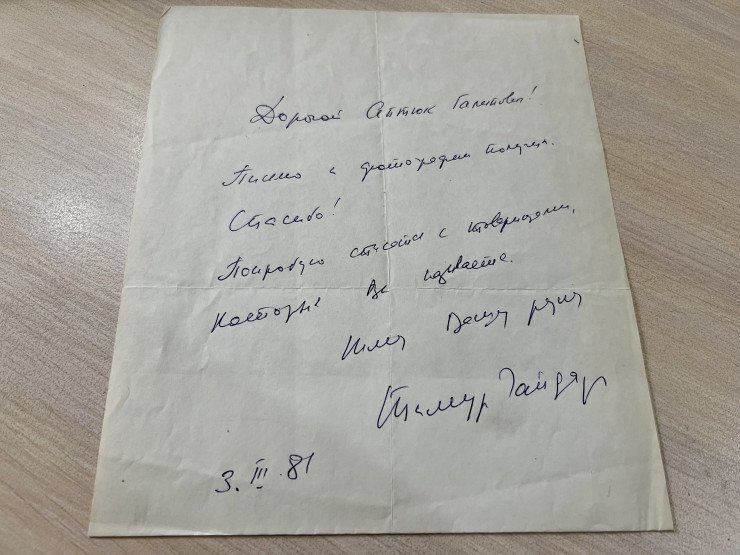 Дорогой Аптюк Галипович!
Письмо и фотографии получил.
Спасибо!
Попробую списаться с товарищами,
которых Вы называете.
Жму Вашу руку
Тимур Гайдар
3. III. 81